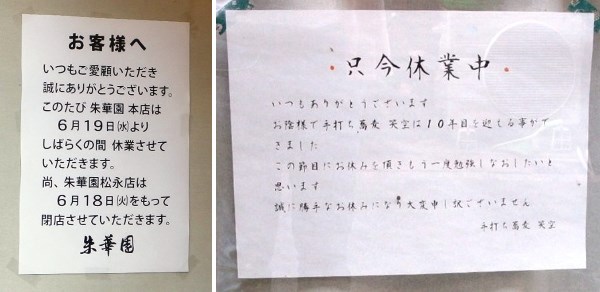 お客様へ
いつもご愛顧いただき
誠にありがとうございます。
このたび 朱華園 本店は
6月19日㈬より
しばらくの間 休業させて
いただきます。
尚、朱華園松永店は
6月18日㈫をもって
閉店させていただきます。
朱華園
只今休業中
いつもありがとうございます
お陰様で手打ち蕎麦 笑空は10年目を迎える事がで
きました
この節目にお休みを頂きもう一度勉強しなおしたいと
思います
誠に勝手なお休みになり大変申し訳ございません
手打ち蕎麦 笑空